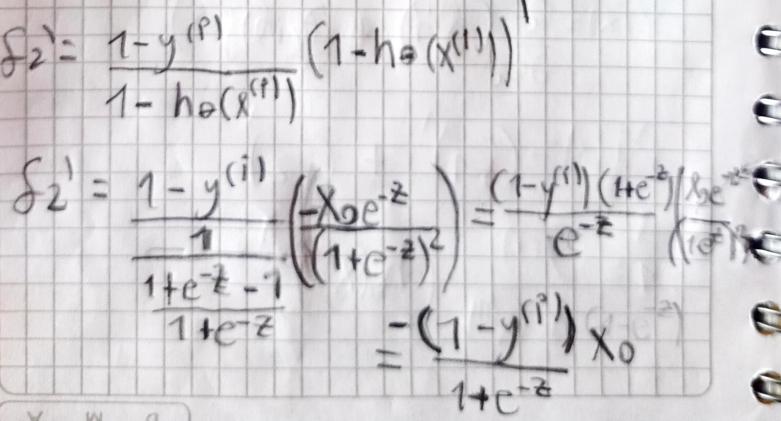 f₂' = \frac{1-y^{(i)}}{1-h_θ(x^{(i)})} (1-h_θ(x^{(i)}))'
f₂' = \frac{1-y^{(i)}}{\frac{1}{\frac{1+e^{-z}-1}{1+e^{-z}}}} \left(\frac{-x_0e^{-z}}{(1+e^{-z})^2}\right) = \frac{(1-y^{(i)})(1+e^{-z})}{e^{-z}}
= \frac{-(1-y^{(i)})}{1+e^{-z}} x_0